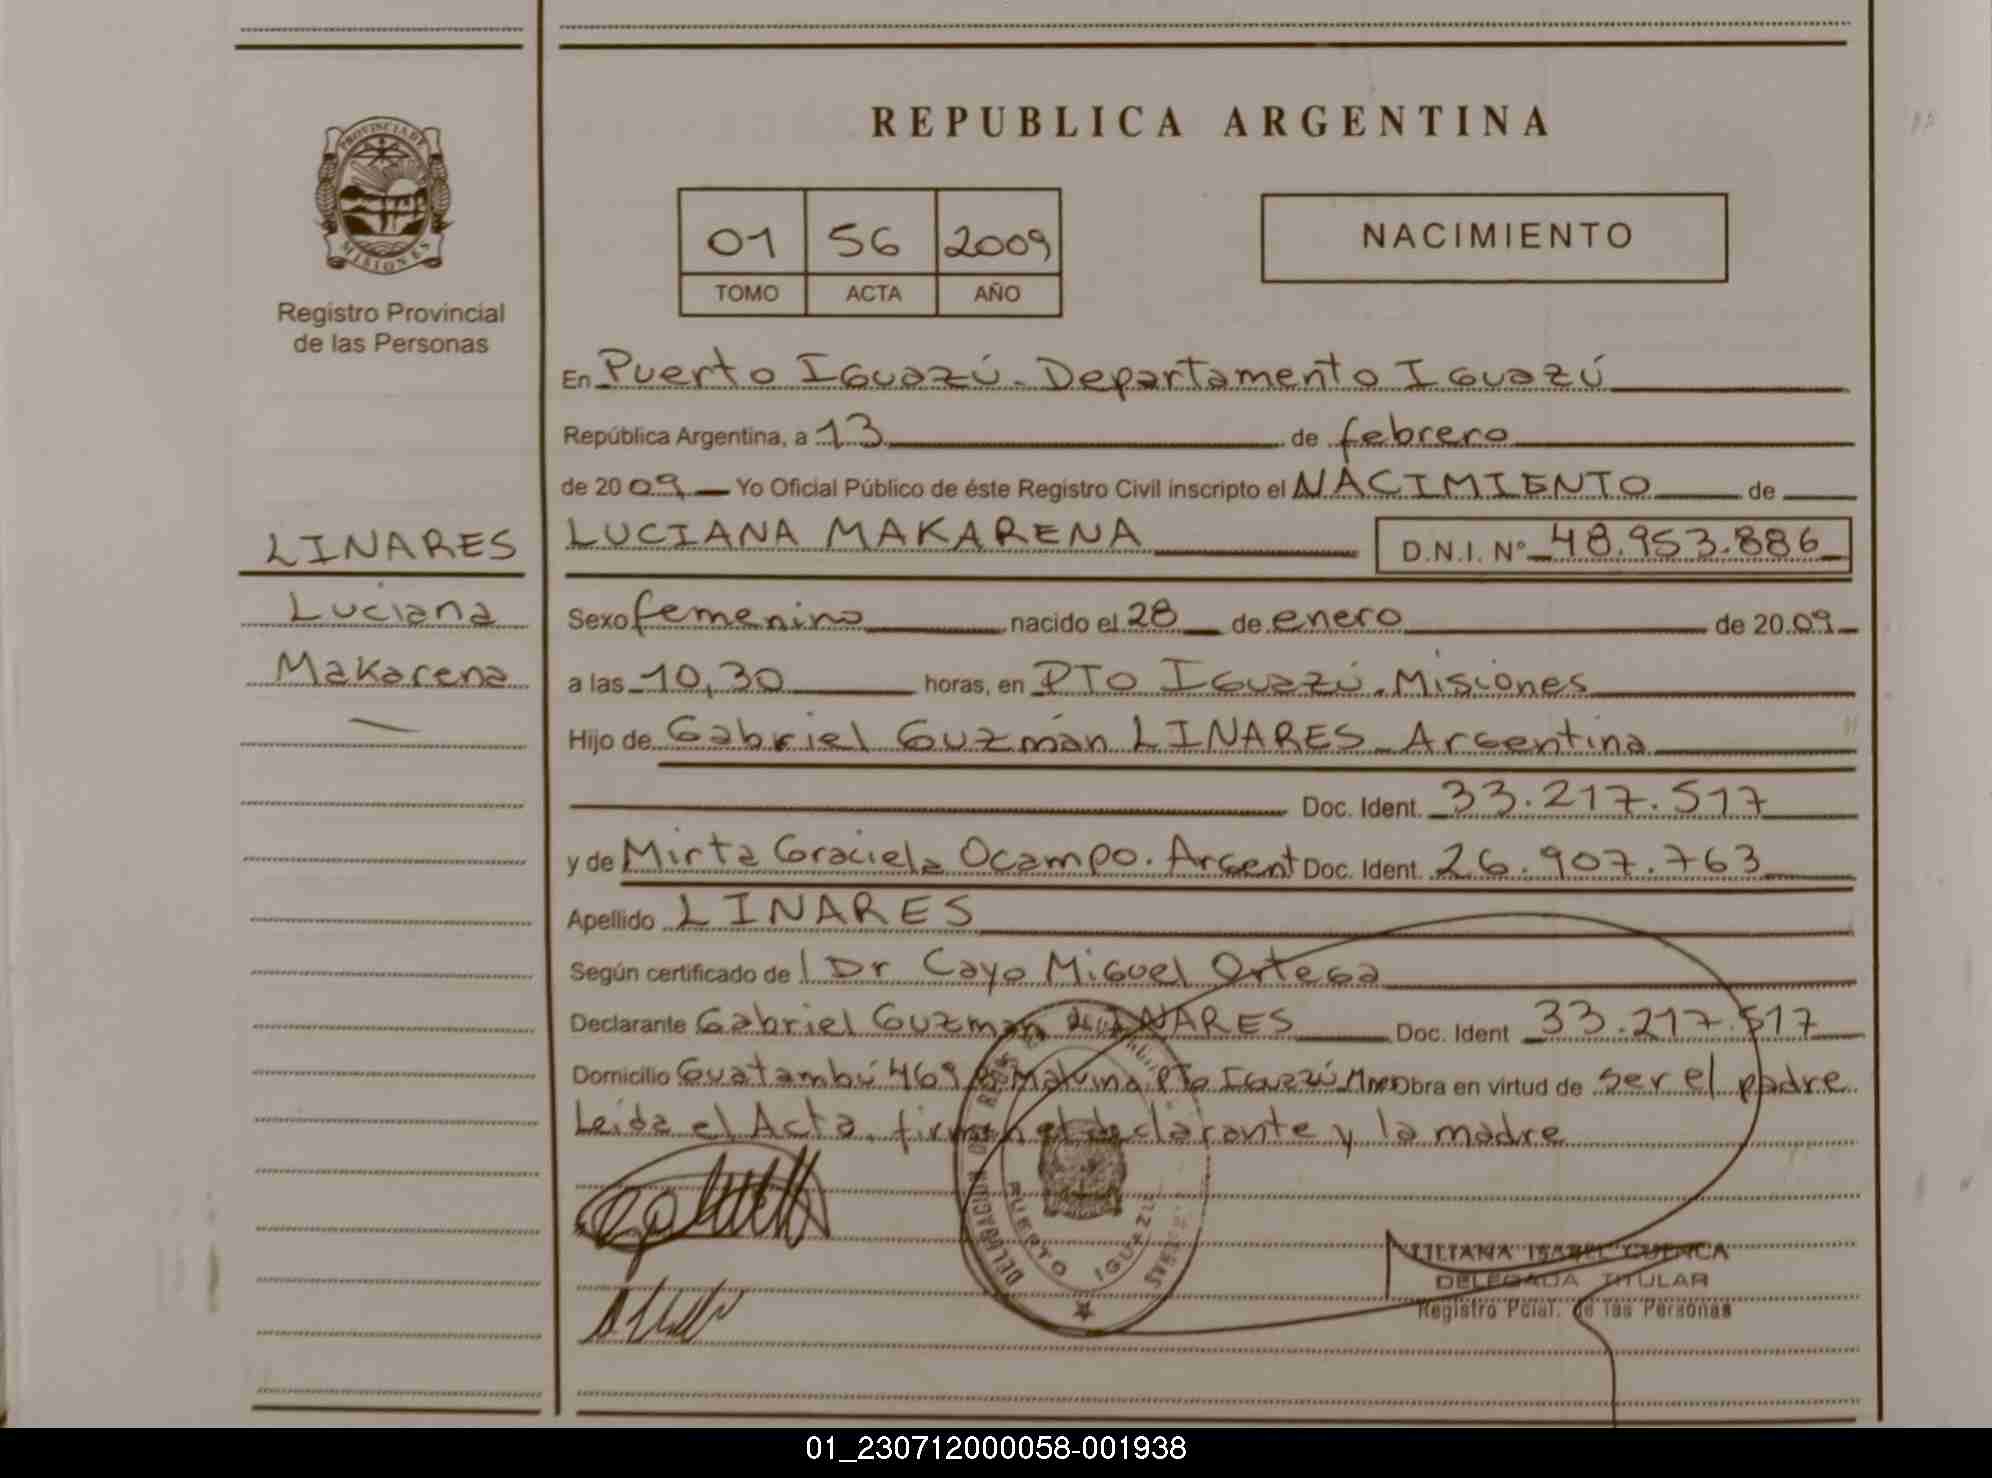 REPUBLICA ARGENTINA
PROVINCIA DE
MISIONES
Registro Provincial
de las Personas
01 56 2009
TOMO ACTA AÑO
NACIMIENTO
En Puerto Iguazú. Departamento Iguazú
República Argentina, a 13 de febrero
de 2009 Yo Oficial Público de éste Registro Civil inscripto el NACIMIENTO de
LINARES
Luciana
Makarena
LUCIANA MAKARENA D.N.I. Nº 48.953.886
Sexo femenino nacido el 28 de enero de 2009
a las 10,30 horas, en PTO Iguazú. Misiones
Hijo de Gabriel Guzmán LINARES Argentina
Doc. Ident. 33.217.517
y de Mirta Graciela Ocampo. Argent Doc. Ident. 26.907.763
Apellido LINARES
Según certificado de Dr Cayo Miguel Ortega
Declarante Gabriel Guzman LINARES Doc. Ident 33.217.517
Domicilio Guatambú 469 Malvina PTo Iguazú Mnes Obra en virtud de ser el padre
Leida el Acta, firman el declarante y la madre
DELEGACION DE
PUERTO IGUAZU
LILIANA ISABEL CUENCA
DELEGADA TITULAR
Registro Pcial. de las Personas
01_230712000058-001938